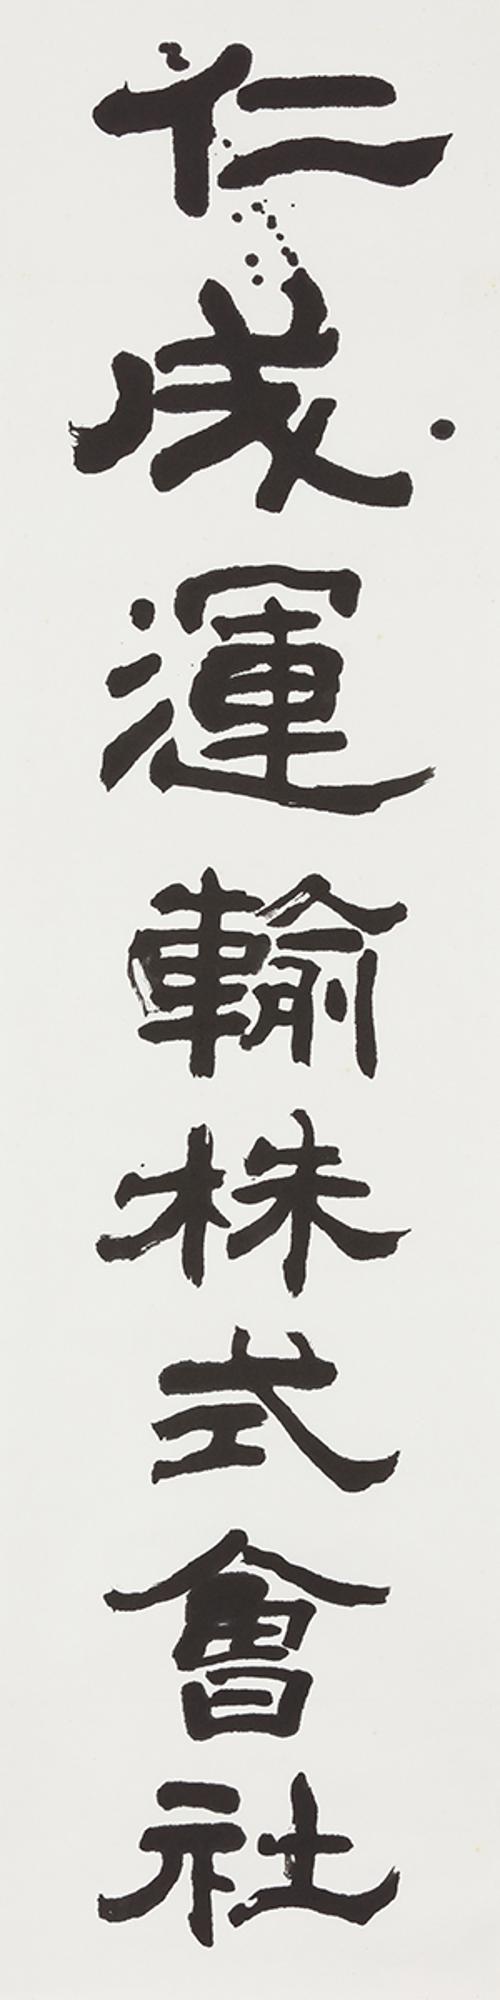 仁成運輸株式會社